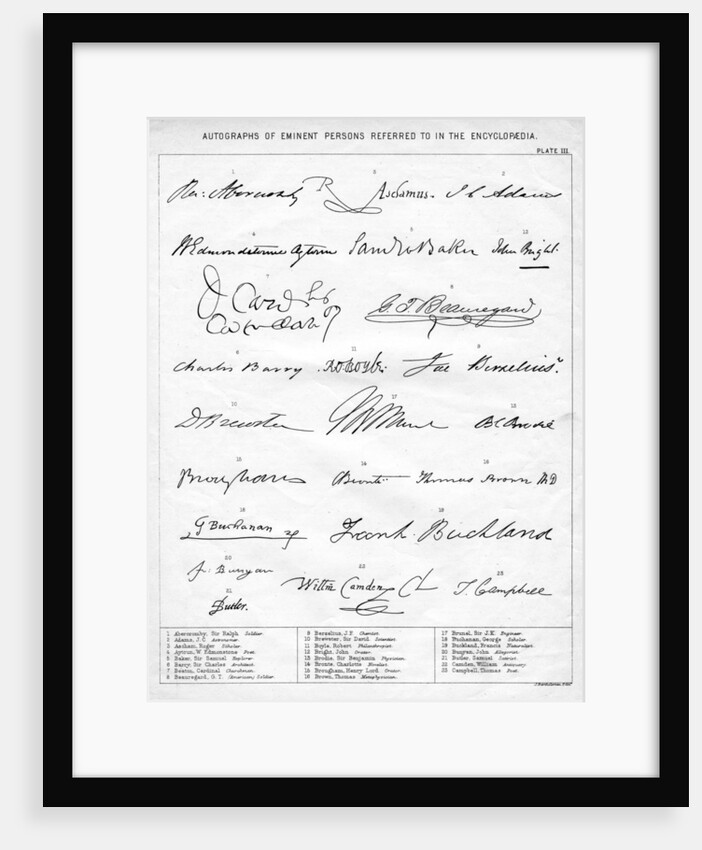 AUTOGRAPHS OF EMINENT PERSONS REFERRED TO IN THE ENCYCLOPÆDIA.
PLATE III.
1 3 2
R Aschamus. J C Adams
4 5 12
WEdmondstoune Aytoun Saml W Baker John Bright.
7 8
G. T. Beauregard
6 11 9
Charles Barry Ro Boyle. Jac Berzelius.
10 17 13
D Brewster B C Brodie
15 14 16
Brougham CBrontë Thomas Brown MD
18 19
G Buchanan Frank Buckland
20 22 23
Jo: Bunyan Willm Camden Cl T. Campbell
21
Butler.
1 Abercromby, Sir Ralph Soldier.
2 Adams, J.C. Astronomer.
3 Ascham, Roger Scholar.
4 Aytoun, W. Edmonstone Poet.
5 Baker, Sir Samuel Explorer.
6 Barry, Sir Charles Architect.
7 Beaton, Cardinal Churchman.
8 Beauregard, G. T. (American) Soldier.
9 Berzelius, J.F. Chemist.
10 Brewster, Sir David Scientist.
11 Boyle, Robert Philanthropist.
12 Bright, John Orator.
13 Brodie, Sir Benjamin Physician.
14 Bronte, Charlotte Novelist.
15 Brougham, Henry Lord Orator.
16 Brown, Thomas Metaphysician.
17 Brunel, Sir J.K. Engineer.
18 Buchanan, George Scholar.
19 Buckland, Francis Naturalist.
20 Bunyan, John Allegorist.
21 Butler, Samuel Satirist.
22 Camden, William Antiquary.
23 Campbell, Thomas Poet.
J. Bartholomew, Edinr